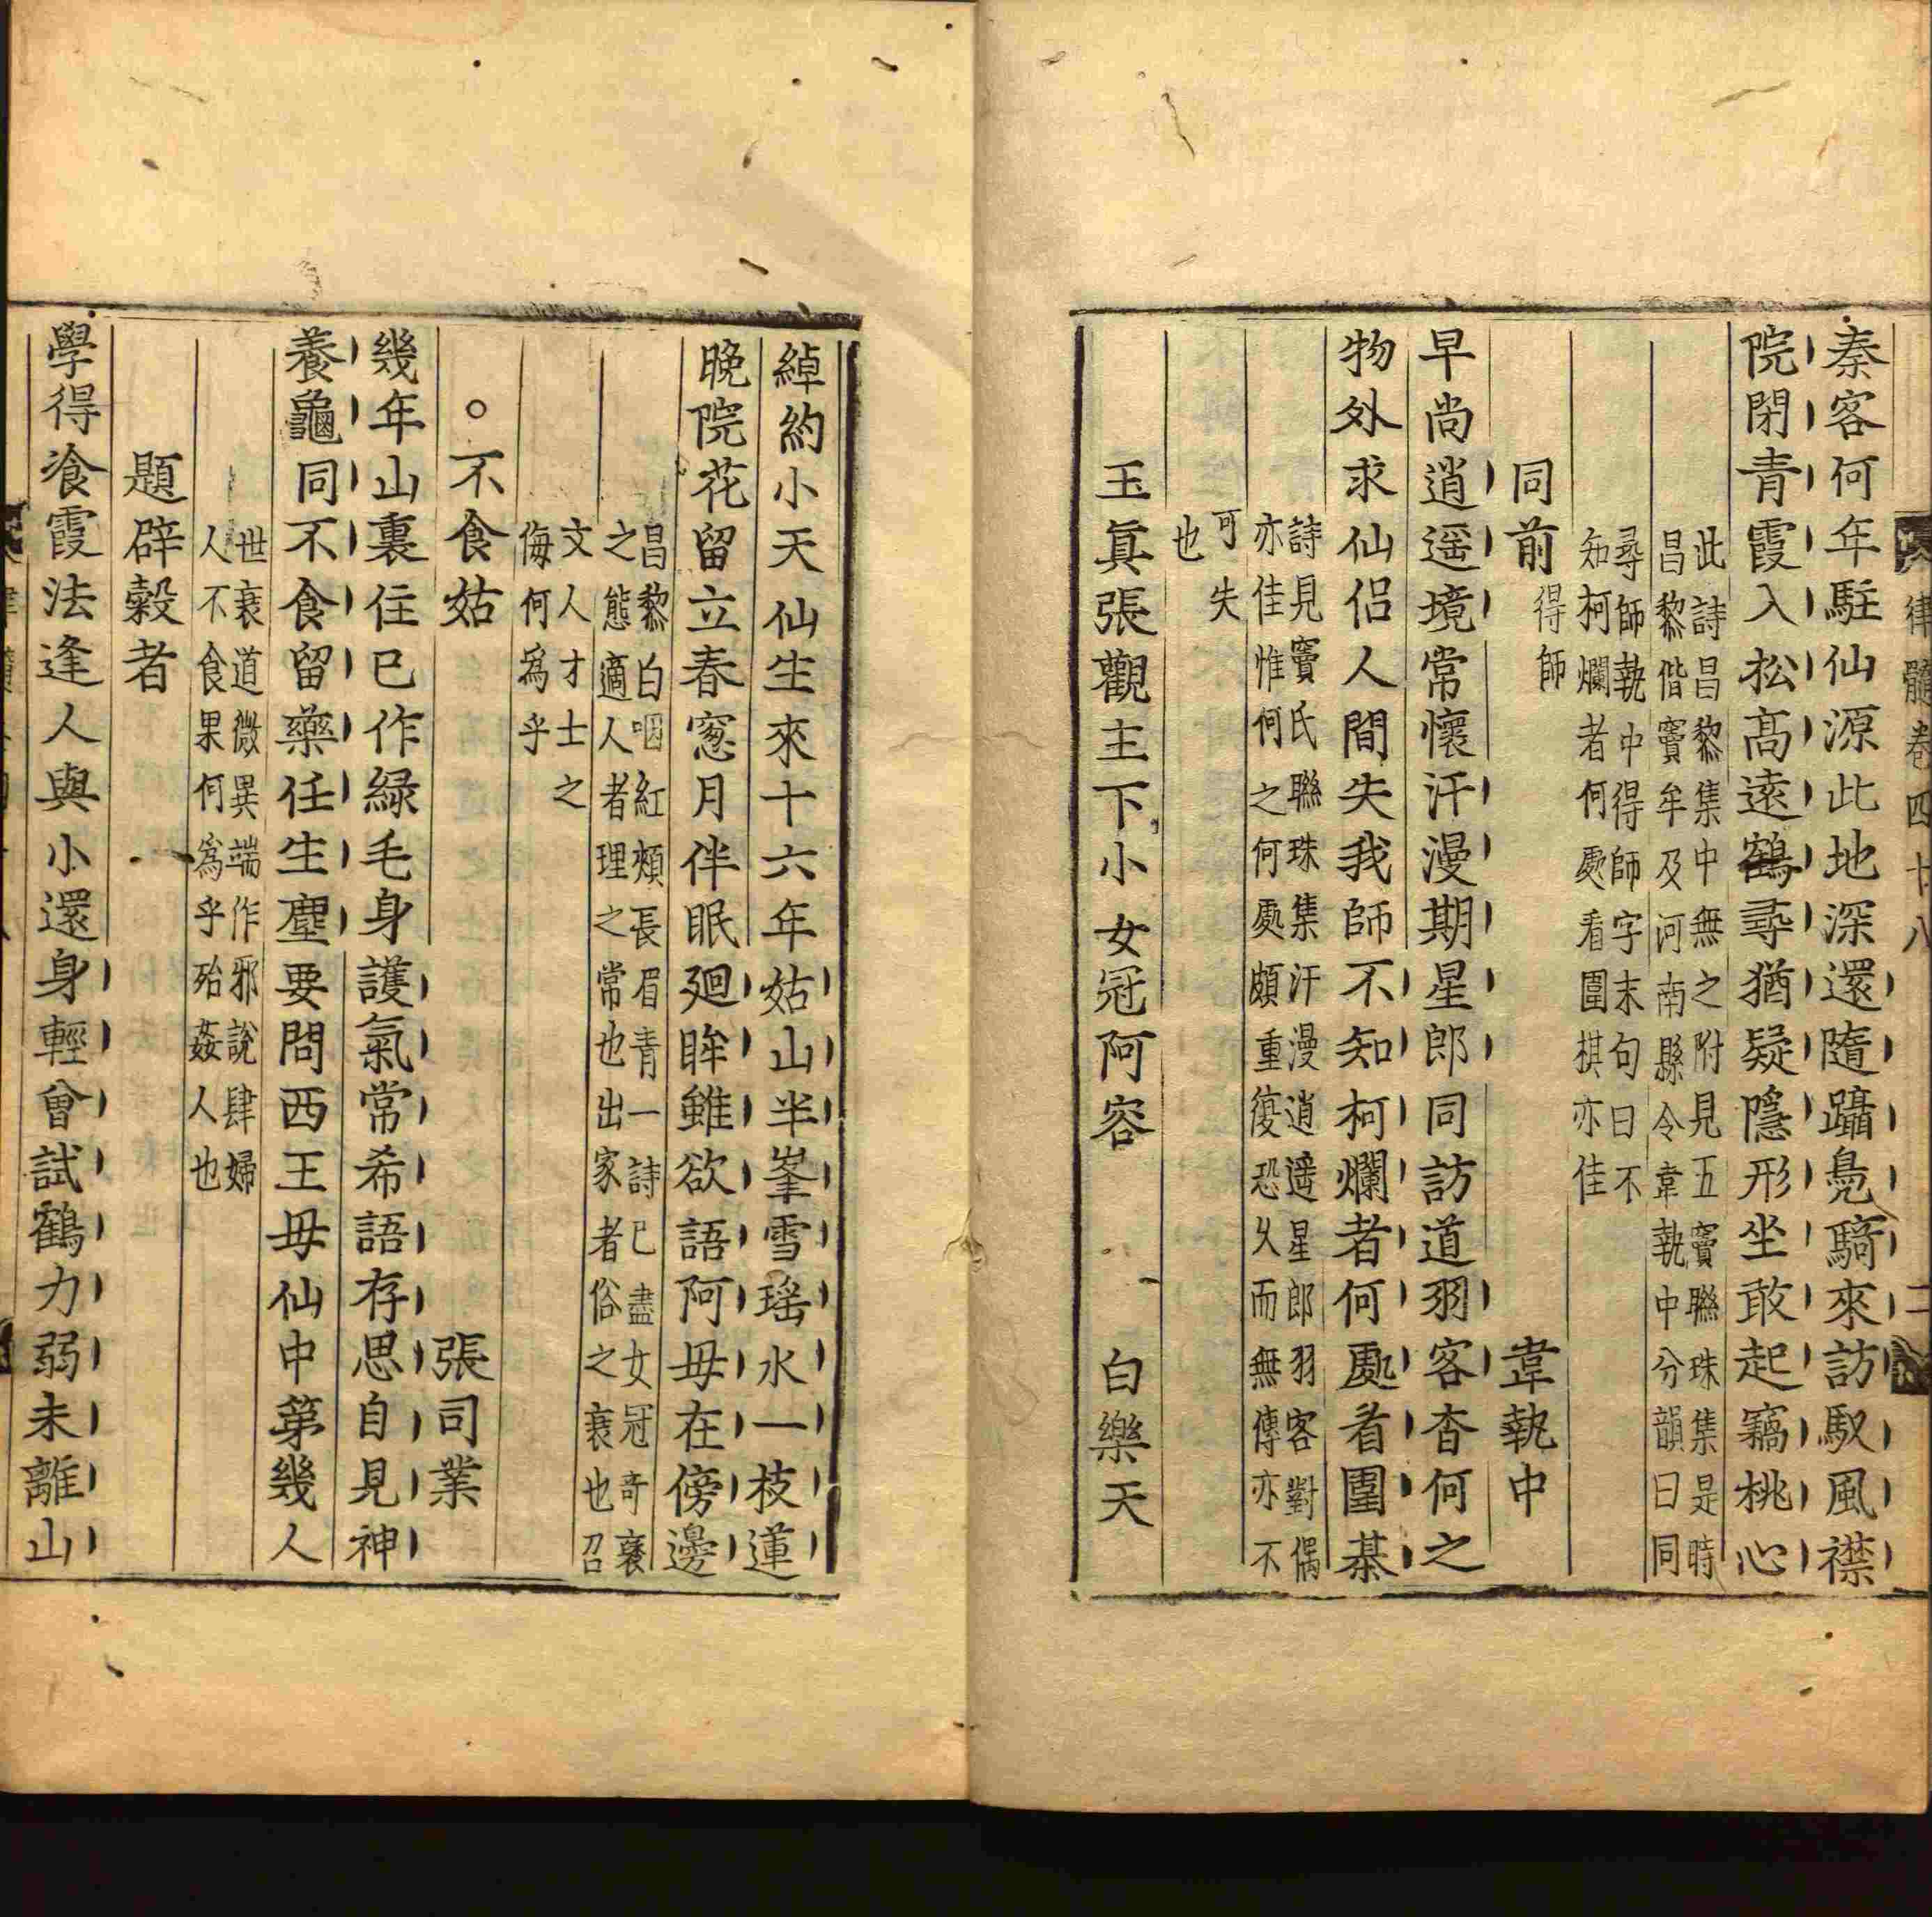 律髓卷四十八 二
秦客何年駐仙源此地深還隨躡鳧騎來訪馭風襟
院閉青霞入松高遠鶴尋猶疑隱形坐敢起竊桃心
此詩昌黎集中無之附見五竇聯珠集是時
昌黎偕竇牟及河南縣令韋執中分韻曰同
尋師執中得師字末句曰不
知柯爛者何處看圍棋亦佳
同前 得師 韋執中
早尚逍遥境常懷汗漫期星郎同訪道羽客杳何之
物外求仙侣人間失我師不知柯爛者何處看圍棊
詩見竇氏聯珠集汗漫逍遥星郎羽客對偶
亦佳惟何之何處頗重復恐久而無傳亦不
可失
也
玉眞張觀主下小女冠阿容 白樂天
綽約小天仙生來十六年姑山半峯雪瑤水一枝蓮
晚院花留立春窓月伴眠廻眸雖欲語阿母在傍邊
昌黎白咽紅頰長眉青一詩已盡女冠奇衺
之態適人者理之常也出家者俗之衰也召
文人才士之
侮何爲乎
。不食姑 張司業
幾年山裏住已作緑毛身護氣常希語存思自見神
養龜同不食留藥任生塵要問西王母仙中第幾人
世衰道微異端作邪說肆婦
人不食果何爲乎殆姦人也
題辟穀者
學得飡霞法逢人與小還身輕曾試鶴力弱未離山